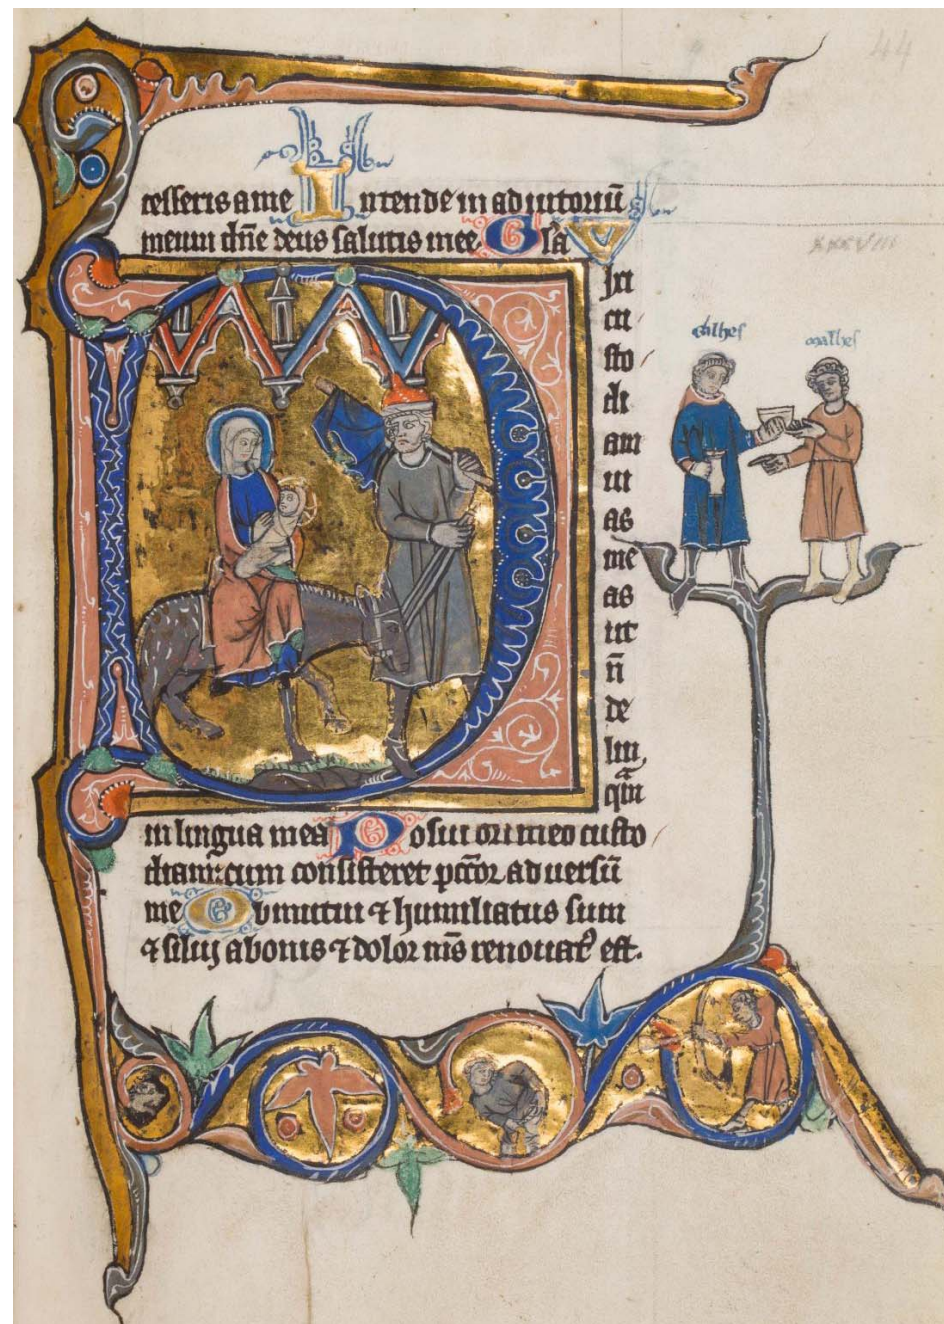 44
cesseris a me Intende in adiutoriū
meum dn̄e deus salutis mee
xxxviii
D
ixi
cu
sto
di
am
ui
as
me
as
ut
n̄
de
lin
qͣm
mathes
in lingua mea Posui ori meo custo
diam: cum consisteret pctōr aduersū
me Obmutui ⁊ humiliatus sum
⁊ siluij a bonis ⁊ dolor ms̄ renouatꝰ est.